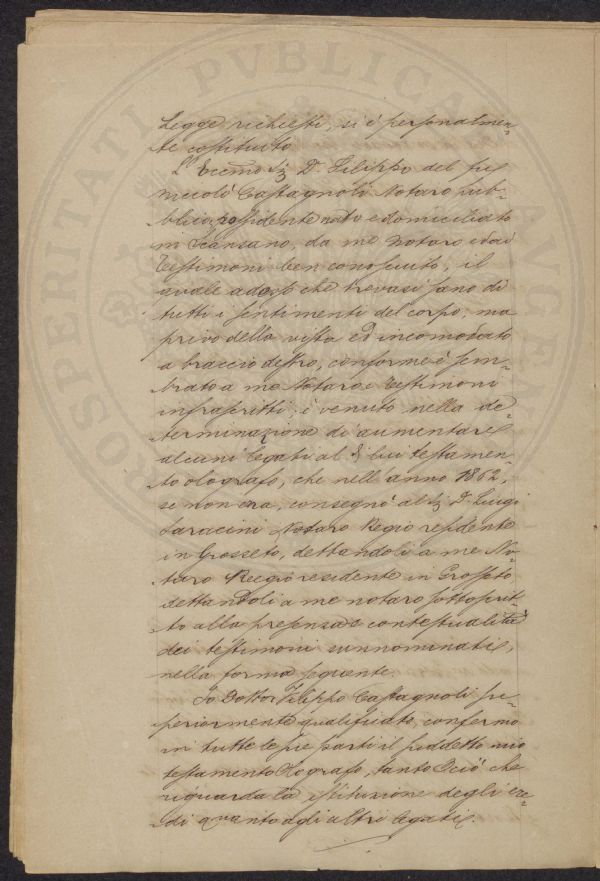 Legge richiesti, si è personalmen-
te costituito
L'Eccmo Sig D. Filippo del fu
Niccolò Castagnoli Notaro pub-
blico, possidente nato e domiciliato
in Scansano, da me Notaro e dai
testimoni ben conosciuto, il
quale adesso che trovasi sano di
tutti i sentimenti del corpo, ma
privo della vista ed incomodato
a braccio destro, conforme è sem-
brato a me Notaro e testimoni
infrascritti, è venuto nella de-
terminazione di aumentare
alcuni legati al di lui testamen-
to olografo, che nell'anno 1862,
se non era, consegnò al Sig D. Luigi
Saracini Notaro Regio residente
in Grosseto, dettandoli a me No-
taro Reegio residente in Grosseto
dettandoli a me notaro sottoscrit-
to alla presenza e contestualità
dei testimoni sunnominati,
nella forma seguente.
Io Dottor Filippo Castagnoli su-
periormente qualificato, confermo
in tutte le sue parti il suddetto mio
testamento Olografo, tanto Ociò che
riguarda la istituzione degli ere-
di quanto agli altri legati.
PROSPERITATI PVBLICAE AVGENDAE